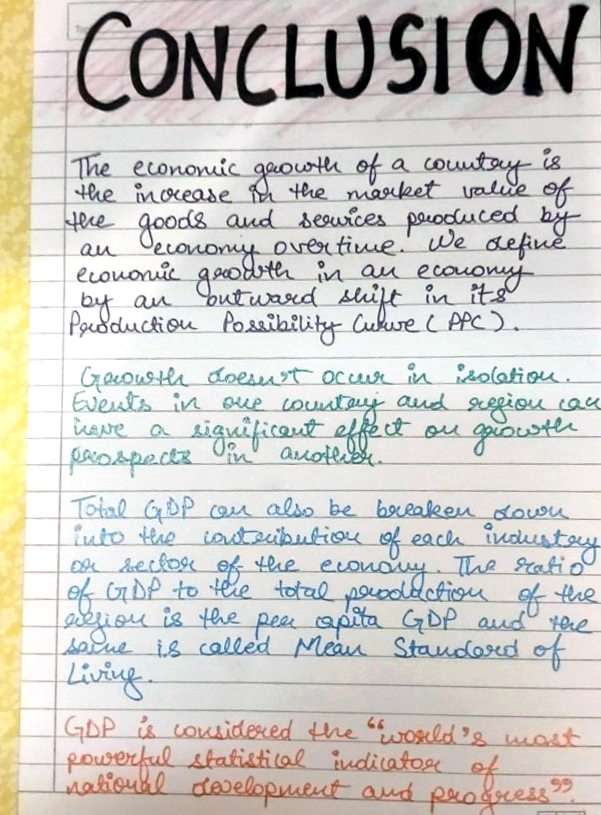 CONCLUSION
The economic growth of a country is
the increase in the market value of
the goods and services produced by
an economy overtime. We define
economic growth in an economy
by an outward shift in its
Production Possibility Curve (PPC).
Growth doesn't occur in isolation.
Events in one country and region can
have a significant effect on growth
prospects in another.
Total GDP can also be broken down
into the contribution of each industry
or sector of the economy. The ratio
of GDP to the total production of the
region is the per capita GDP and the
same is called Mean Standard of
Living.
GDP is considered the "world's most
powerful statistical indicator of
national development and progress".